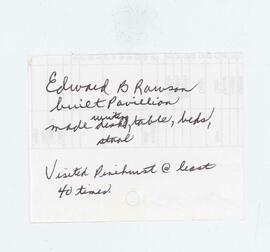 Edward B Rawson
built Pavillion
writing
made desk, table, beds,
stool
Visited Pinehurst @ least
40 times.